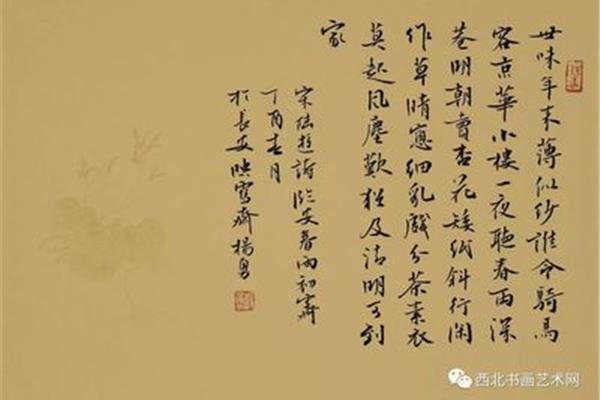 世味年来薄似纱谁令骑馬
客京華小楼一夜聽春雨深
巷明朝賣杏花矮纸斜行闲
作草晴窓细乳戲分茶素衣
莫起风塵歎猶及清明可到
家
宋陆游詩临安春雨初霽
丁酉春月
於長安映齋楊勇
西北书画艺术网